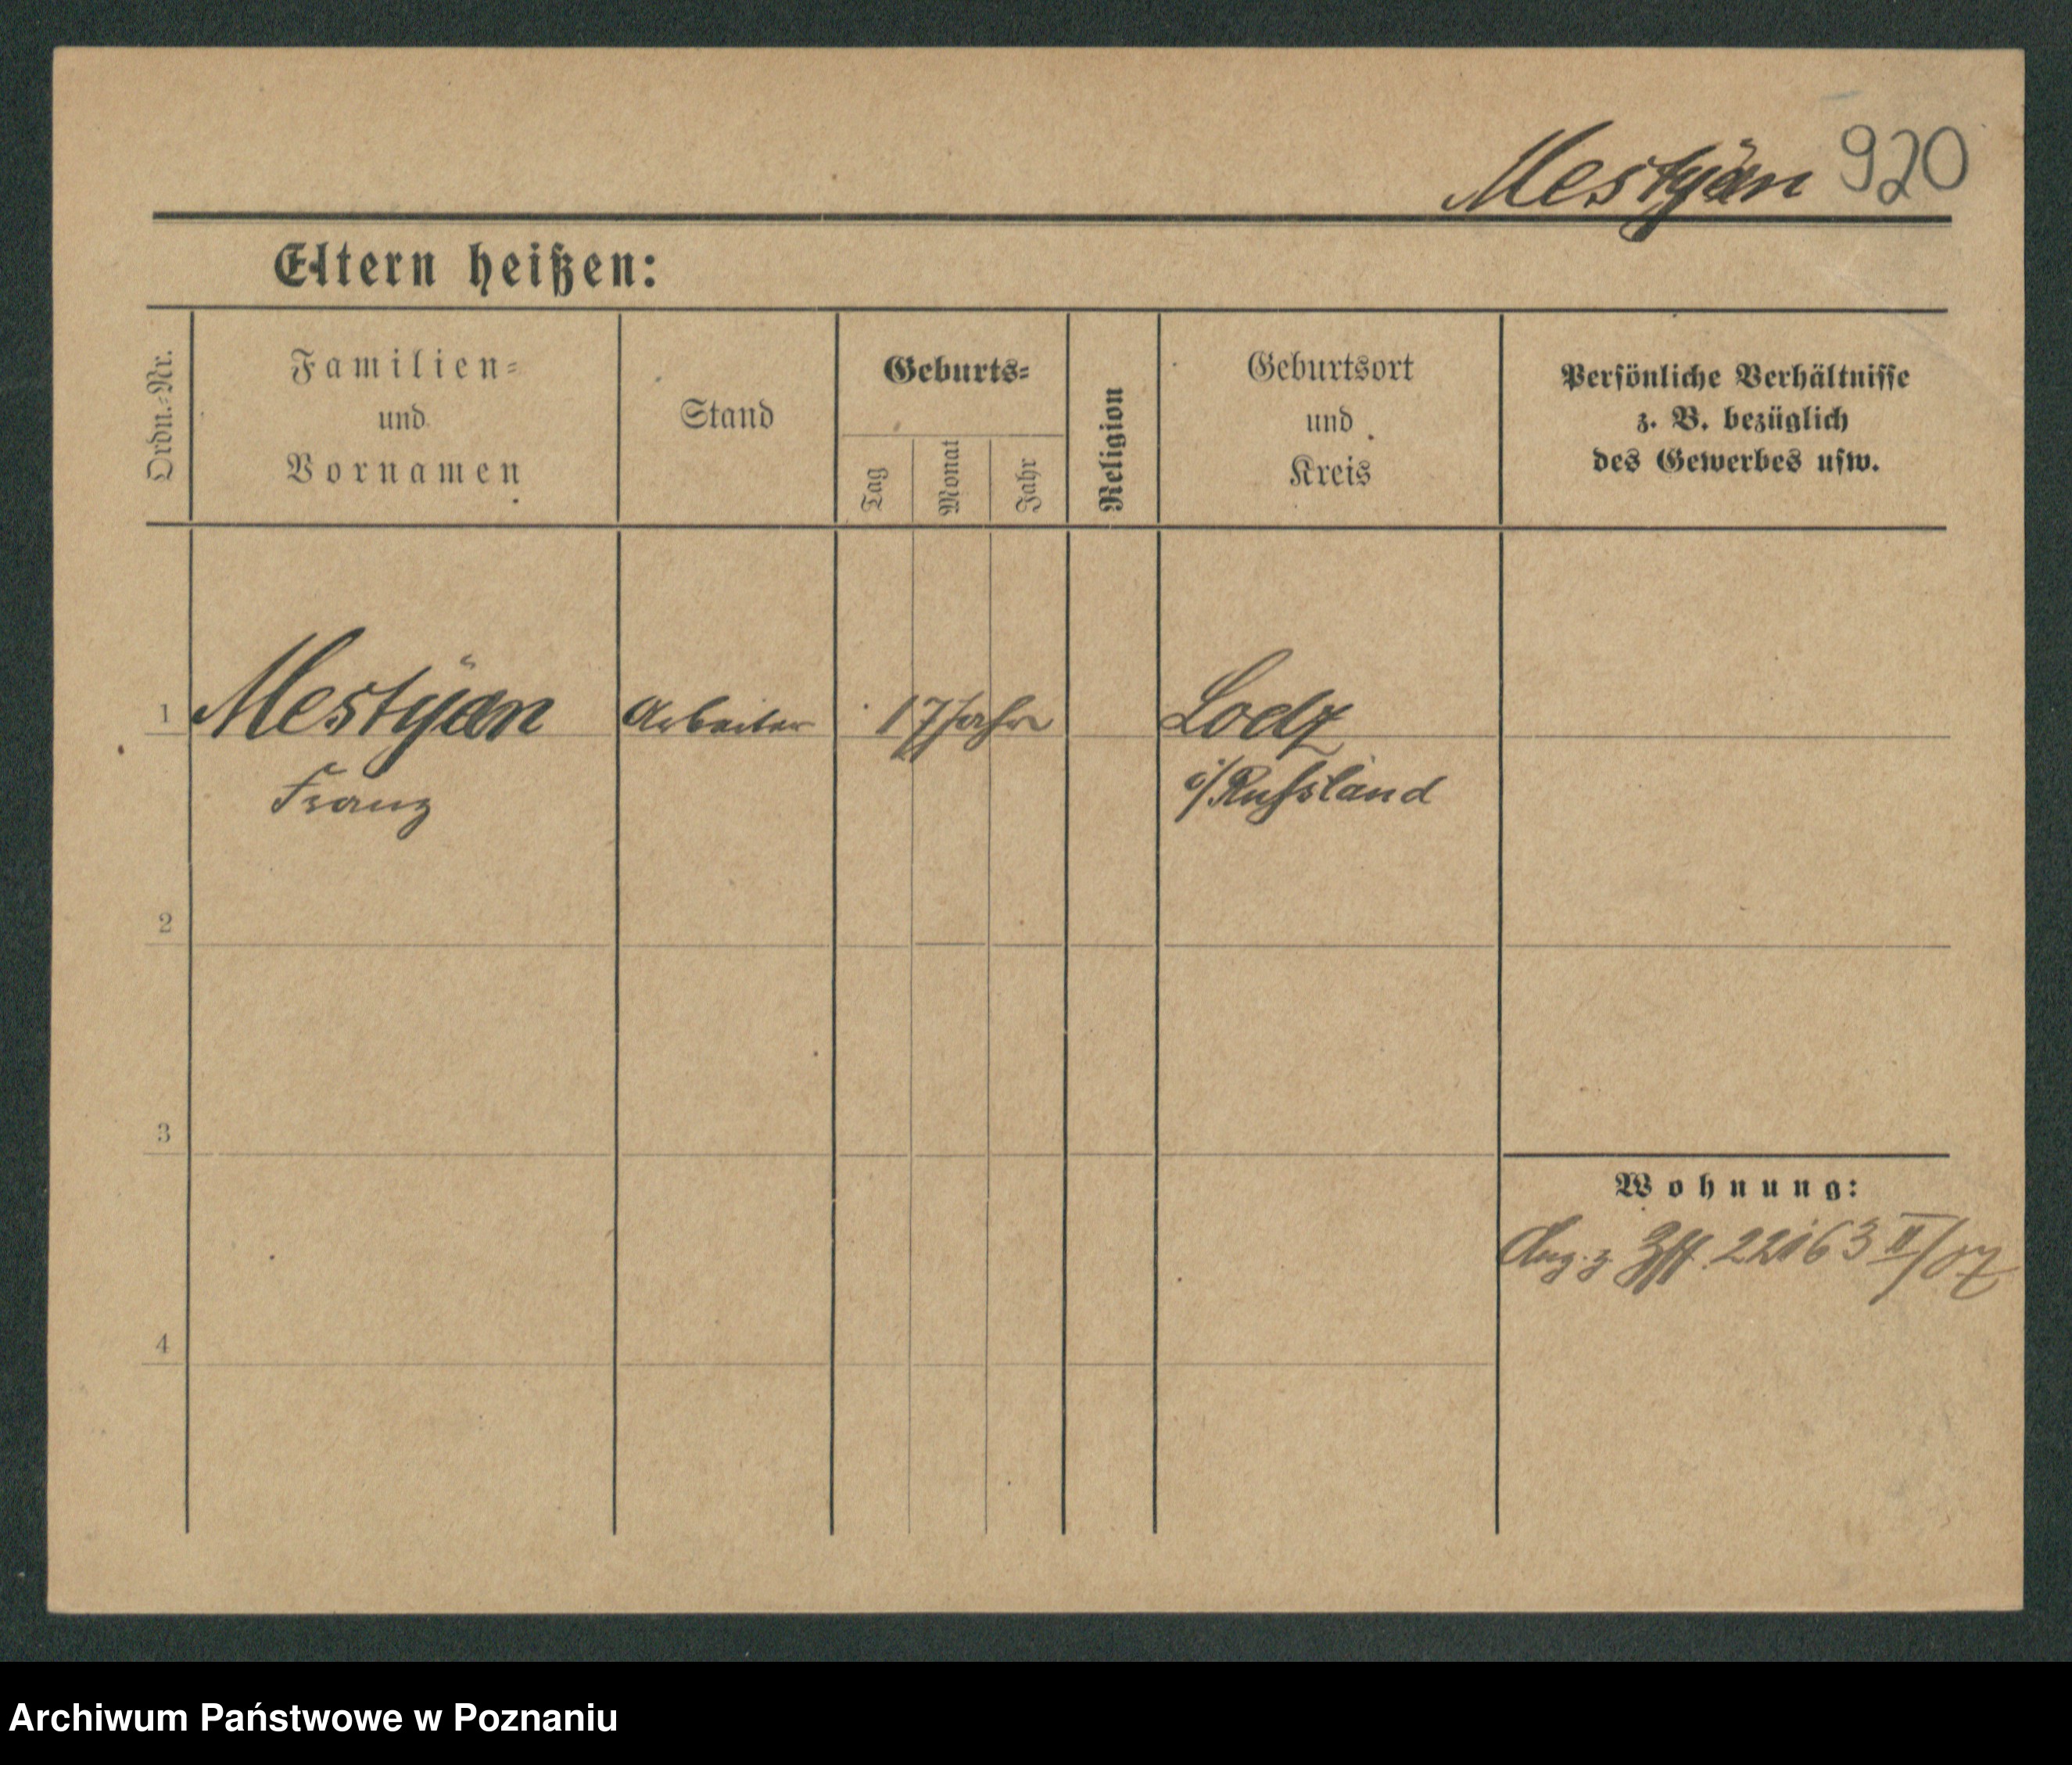 Mestyän 920
Eltern heißen:
Ordn.-Nr.
Familien-
und
Vornamen
Stand
Geburts-
Tag
Monat
Jahr
Religion
Geburtsort
und
Kreis
Persönliche Verhältnisse
z. B. bezüglich
des Gewerbes usw.
1 Mestyän Arbeiter 17 Jahr Lodz
Franz i/Russland
2
3
Wohnung:
22163 II/07
4
Archiwum Państwowe w Poznaniu